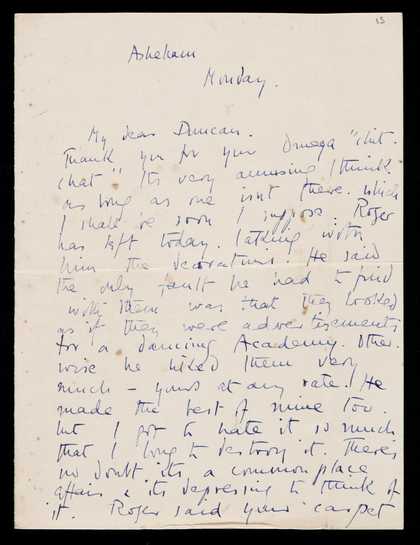 15
Asheham
Monday.
My dear Duncan.
Thank you for your Omega "chit-
chat" Its very amusing I think
as long as one isnt there. which
I shall be soon I suppose. Roger
has left today. taking with
him the decorations. He said
the only fault he had to find
with them was that they looked
as if they were advertisements
for a dancing Academy. Other-
wise he liked them very
much – yours at any rate. He
made the best of mine too.
but I got to hate it so much
that I long to destroy it. There's
no doubt its a commonplace
affair & its depressing to think of
it. Roger said your carpet